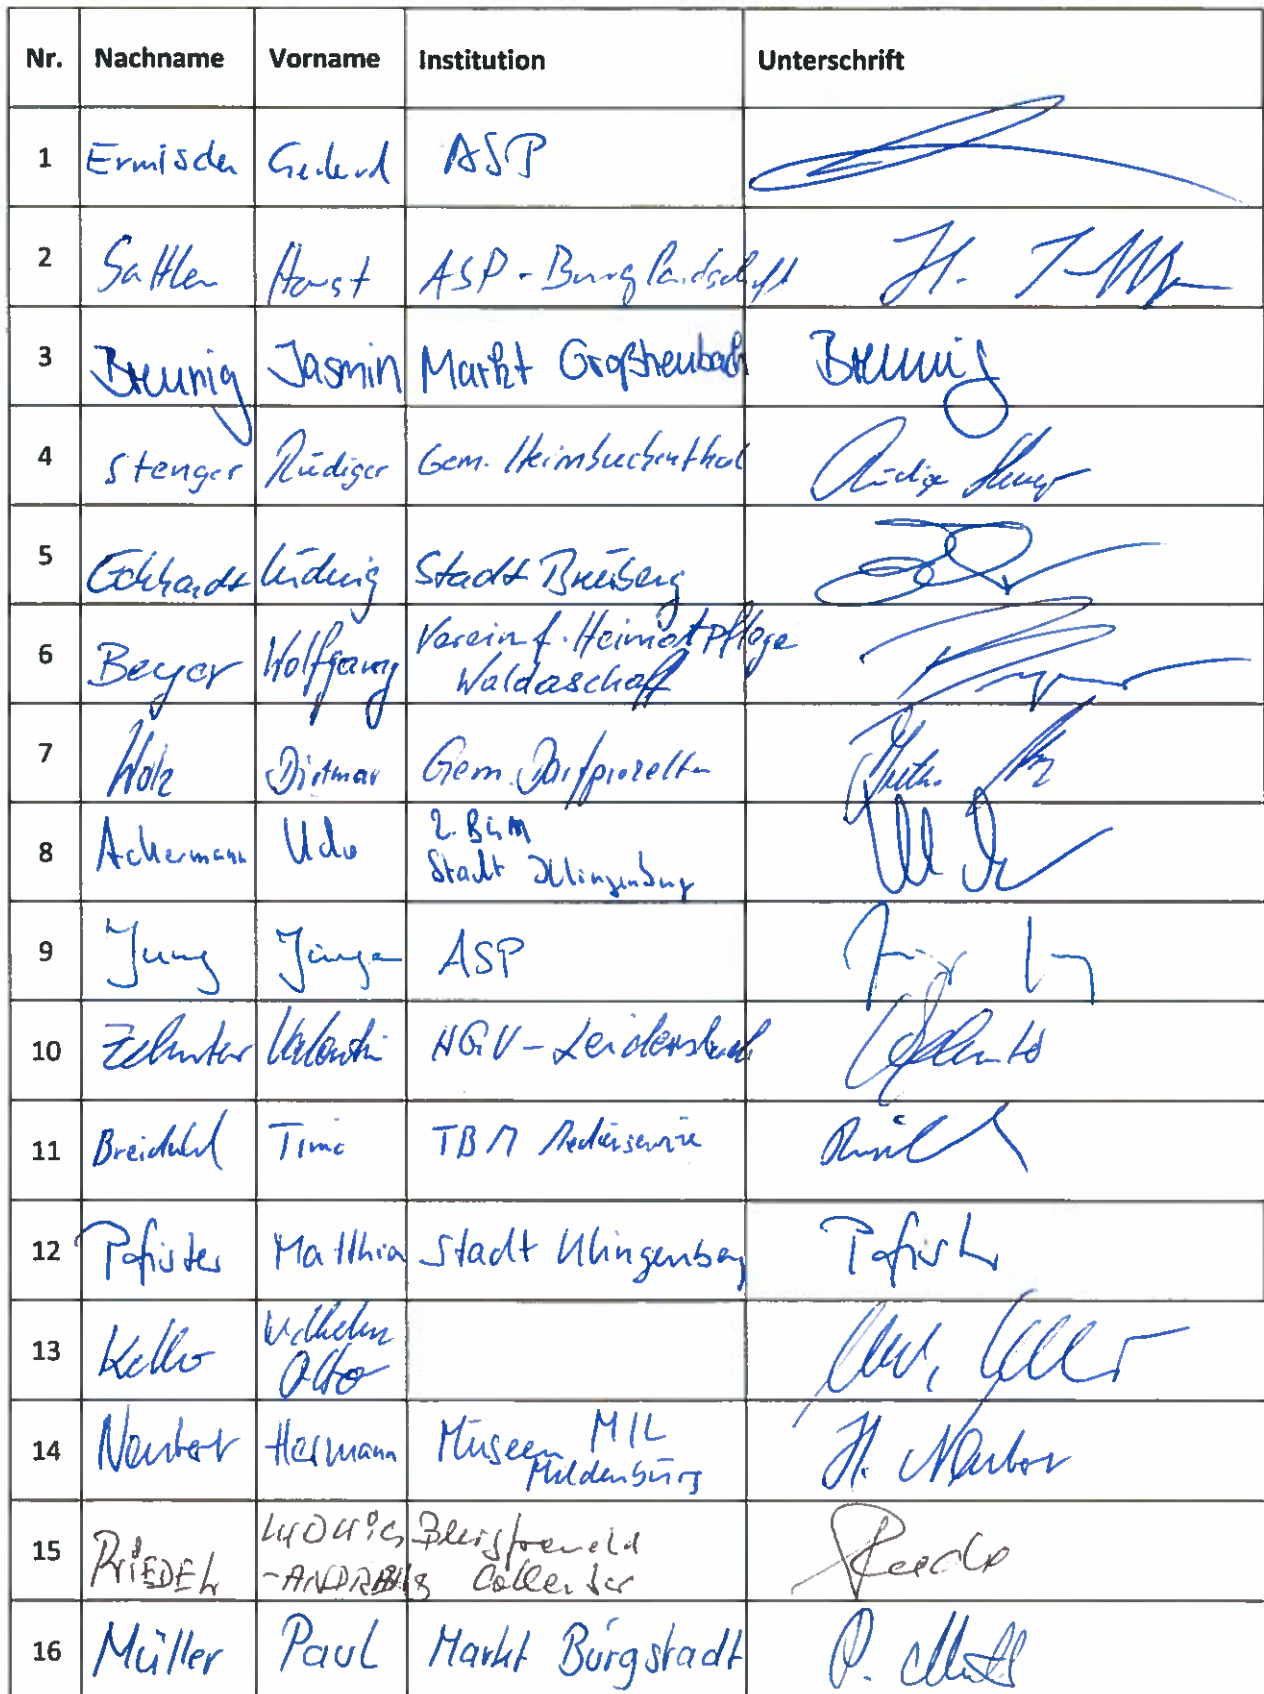 Nr. Nachname Vorname Institution Unterschrift
1 Ermischer Gerhard ASP
2 Sattler Horst ASP - Burglandschaft H. Sattler
3 Breunig Jasmin Markt Großheubach Breunig
4 Stenger Rüdiger Gem. Heimbuchenthal Rüdiger Stenger
5 Eckhardt Ludwig Stadt Breuberg
6 Beyer Wolfgang Verein f. Heimatpflege
Waldaschaff
7 Wolz Dietmar Gem. Dorfprozelten
8 Ackermann Udo 2. Bgm
Stadt Klingenberg
9 Jung Jürgen ASP
10 Zehnter Valentin HGV - Leidersbach
11 Breidubel Timo TBM Medienservice
12 Pofister Matthias Stadt Klingenberg Pofister
13 Keller Wilhelm
Otto
14 Neubert Hermann Museen MIL
Mildenburg H. Neubert
15 RIEDEL LUDWIG Burgfreund
-ANDREAS
16 Müller Paul Markt Bürgstadt P. Müller